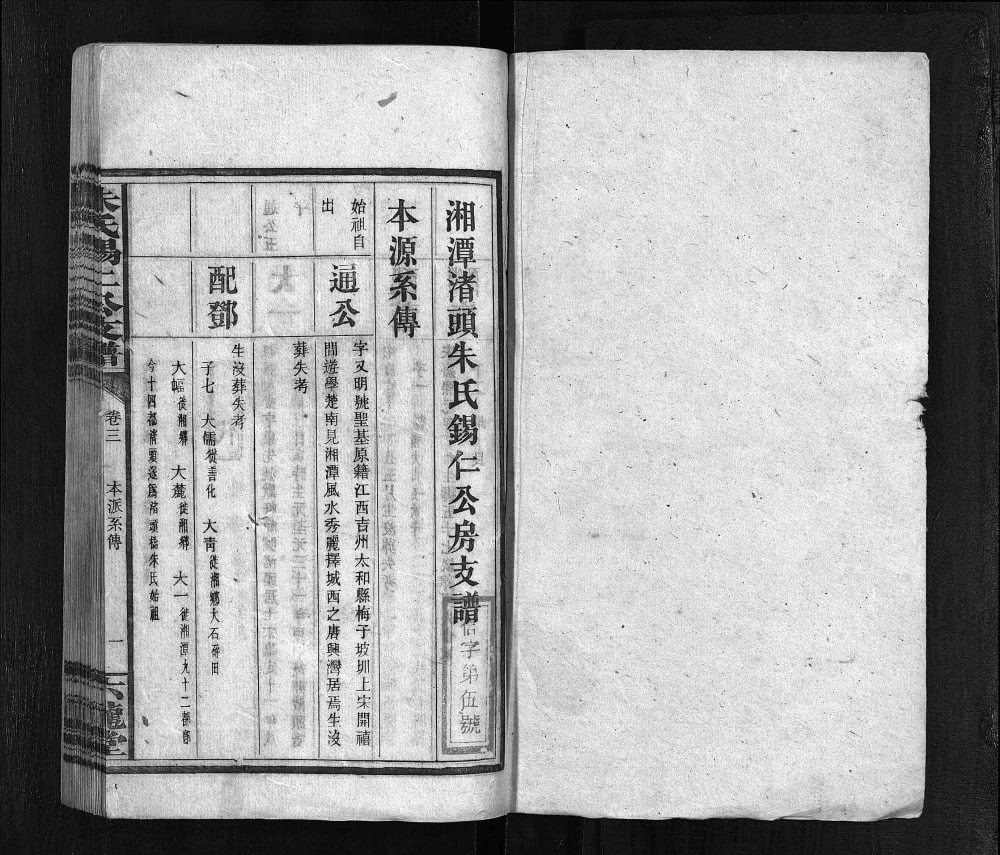 湘潭渚頭朱氏錫仁公房支譜
信字第伍號
本源系傳
始祖自
出
通公
字又明號聖基原籍江西吉州太和縣梅于坡圳上宋開禧
間遊學楚南見湘潭風水秀麗擇城西之唐興灣居焉生沒
葬失考
配鄧
生沒葬失考
子七 大儒徙善化 大靑徙湘鄉大石碑田
大幅徙湘鄉 大麓徙湘鄉 大一徙湘潭九十二都
今十四都渚頭遂爲渚頭朱氏始祖
朱氏錫仁公支譜
卷三
本派系傳
一
六龍堂